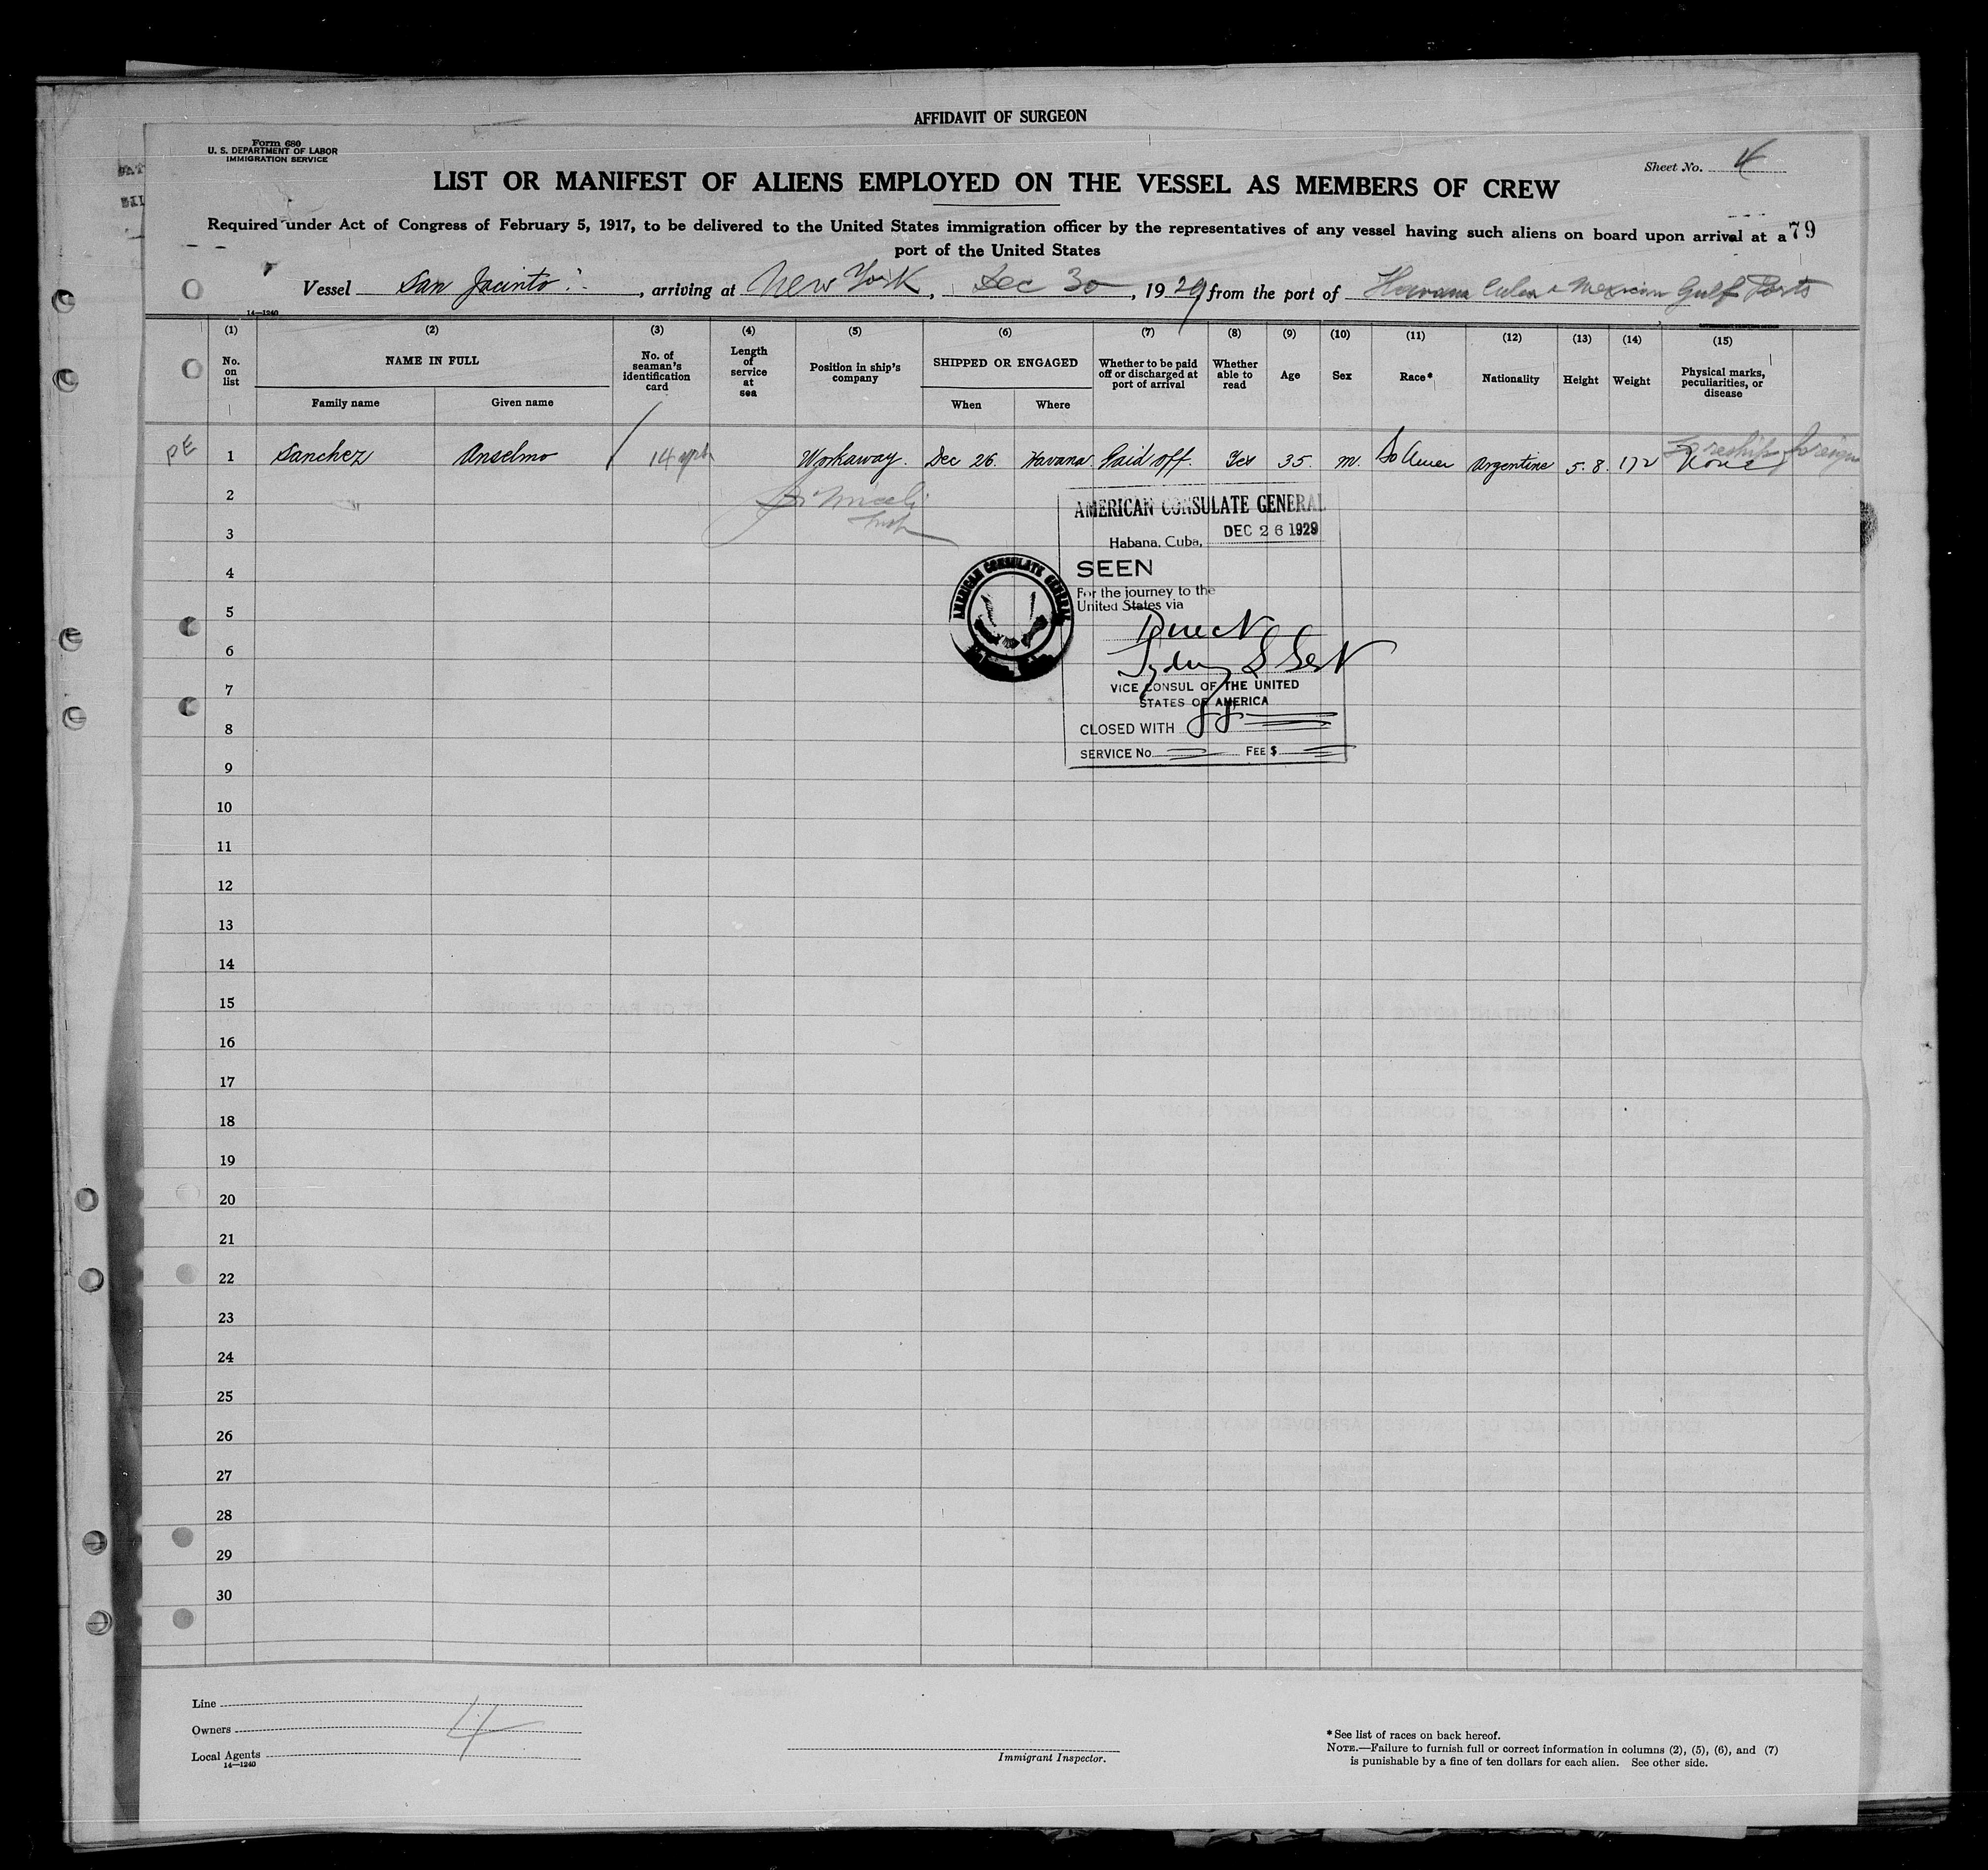 AFFIDAVIT OF SURGEON
Form 680
U. S. DEPARTMENT OF LABOR
IMMIGRATION SERVICE
Sheet No. 4
LIST OR MANIFEST OF ALIENS EMPLOYED ON THE VESSEL AS MEMBERS OF CREW
Required under Act of Congress of February 5, 1917, to be delivered to the United States immigration officer by the representatives of any vessel having such aliens on board upon arrival at a
79
port of the United States
Vessel San Jacinto, arriving at New York, Dec 30, 1929 from the port of Havana Cuba & Mexican Gulf Ports
14—1240
(1) (2) (3) (4) (5) (6) (7) (8) (9) (10) (11) (12) (13) (14) (15)
No. on list
NAME IN FULL
Family name
Given name
No. of seaman's identification card
Length of service at sea
Position in ship's company
SHIPPED OR ENGAGED
When
Where
Whether to be paid off or discharged at port of arrival
Whether able to read
Age
Sex
Race*
Nationality
Height
Weight
Physical marks, peculiarities, or disease
PE 1 Sanchez Anselmo 14 Workaway. Dec 26. Havana. Paid off. Yes 35. m. So Amer Argentine 5.8. 172 None foreign
2
3
4
5
6
7
8
9
10
11
12
13
14
15
16
17
18
19
20
21
22
23
24
25
26
27
28
29
30
AMERICAN CONSULATE GENERAL
Habana, Cuba, DEC 26 1929
SEEN
For the journey to the
United States via
Direct
VICE CONSUL OF THE UNITED
STATES OF AMERICA
CLOSED WITH
SERVICE No. FEE $
AMERICAN CONSULATE GENERAL
Line
Owners
Local Agents
14—1240
4
Immigrant Inspector.
* See list of races on back hereof.
NOTE.—Failure to furnish full or correct information in columns (2), (5), (6), and (7)
is punishable by a fine of ten dollars for each alien. See other side.